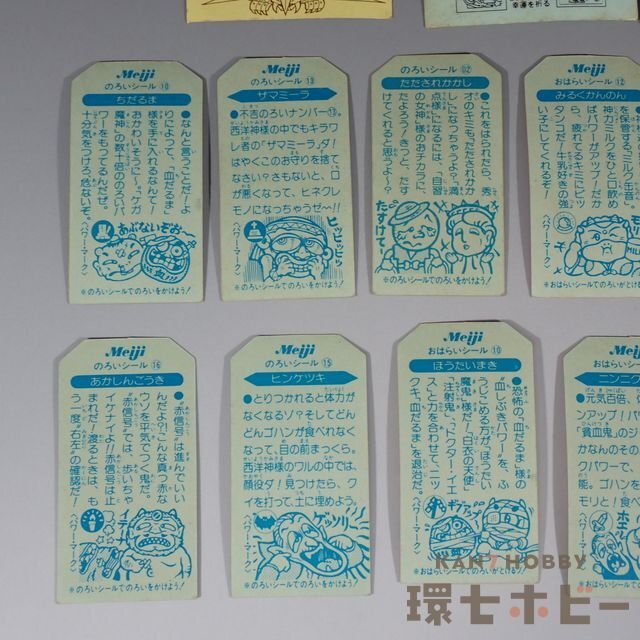 幸運を祈る
Meiji
のろいシール⑩
ちだるま
●なんと言うことだ!よ
りによって、“血だるま”
様を手に入れるなんて!
おかわいそうに〜。ケガ
魔神”の数十倍ののろいパ
ワーをもってるんだぜ。
十分気をつけろ、危ないぞ。
〈パワー・マーク〉
あぶないぞお
※のろいシールでのろいをかけよう!
Meiji
のろいシール⑬
ザマミーラ
●不吉ののろいナンバー⑬。
西洋神様の中でもキラワ
レ者の「ザマミーラ」ダ!
はやくこのお守りを捨て
なさい?さもないと、口
が悪くなって、ヒネクレ
モノになっちゃうぜ〜!!
〈パワー・マーク〉
※のろいシールでのろいをかけよう!
のろいシール 02
たたされかかし
●これをはられたら、秀
才のキミも“たたされか
かし”になっちゃうよ。満
点様”になるには、「自習
の女神」様のおチカラに
たよろう!きっと、たす
けてくれると思うよー!
〈パワー・マーク〉
たすけて!
※のろいシールでのろいをかけよう!
Meiji
おはらいシール⑫
みるくかんのん
を保管する、ミルク“缶音”
神カミルクをひと口飲め
ばパワーがアップ!だか
ら、疲れてるキミにピッ
タンコだ!牛乳好きの強
い子にしてくれるぞ!
〈パワー・マーク〉
※おはらいシールでのろいがとける
Meiji
のろいシール⑯
あかしんごうき
●“赤信号”は進んでいい
んだよ?!こんな真っ赤な
ウソを平気でつく鬼だ。
“赤信号”では、歩いちゃ
イケナイよ!!赤信号は止
まれだ!渡るときは、も
う一度“右左”の確認だ!
〈パワー・マーク〉
※のろいシールでのろいをかけよう!
Meiji
のろいシール⑮
ヒンケツキ
●とりつかれると体力が
なくなるゾ?そしてどん
どんゴハンが食べれなく
なって、目の前まっくら。
西洋神様のワルの中では、
顔役ダ!見つけたら、ク
イを打って、土に埋めよう。
〈パワー・マーク〉
ゲッソリ
※のろいシールでのろいをかけよう!
Meiji
おはらいシール⑩
ほうたいまき
●恐怖の、“血だるま”様の
“血しぶきパワー”を、ふ
うじこめる方が“ほうたい
魔鬼”様だ!「白衣の天使」
「注射鬼」「ドクター・イエ
ス」と力を合わせて、ニッ
クキ、血だるま”を退治だ。
〈パワー・マーク〉
ギャアッ
※おはらいシールでのろいがとける!
Meiji
おはらいシール
ニンニク
●元気百倍、
ンアップ!バ
“貧血鬼”のジ
かなんのその
クパワーで、
能。ゴハンを
モリと!食べ
〈パワー・マーク〉
※おはらいシールでの
KAN7HOBBY
環七ホビー